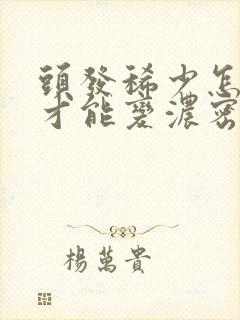 頭發稀少怎
才能變濃密
楊萬貴